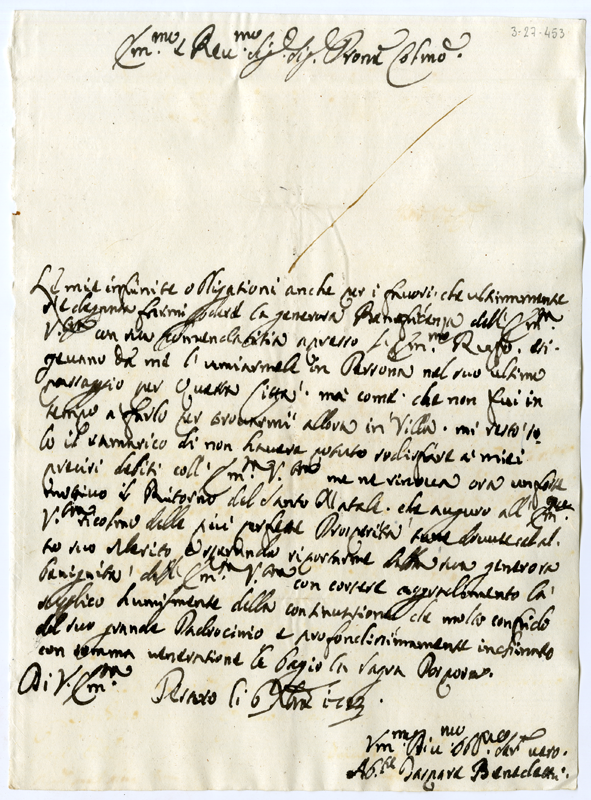 3-27-453
Em.mo e Reu.mo Sig.r Sig.r Pron.e Colmo.
Le mie infinite obligationi anche per i fauori, che ultimamente
degnata farmi godere la generosa Beneficenza dell' Em.za
V.ra con sua apresso l' Em.mo Ruffo. esi-
geuano da me l' inuiarmele in Persona nel suo ultimo
passaggio per questa Città. mà come che non fui in
tempo a farlo per trouarmi allora in Villa. mi restò so
lo il ramarico di non hauere potuto sodisfare ai miei
precisi debiti coll' Em.za V.ra me ne rinoua ora un forte
motiuo il Ritorno del Santo Natale. che auguro all' Em.za
V.ra ricolmo delle più perfette Prosperità tanto douute ad al-
to suo Merito, e sperando riportarne dalla sua generosa
benignità dell' Em.za V.ra con cortese aggradimento la
supplico humilmente della continuatione che molto confido
del suo grande Padrocinio e profondissimamente inchinato
con somma ueneratione le bagio la sagra Porpora.
Di V. Em.za
Pesaro li 6
Vm.mo Diu.mo Obb.mo Ser. uero.
Ab.te Gaspare Benedetti.